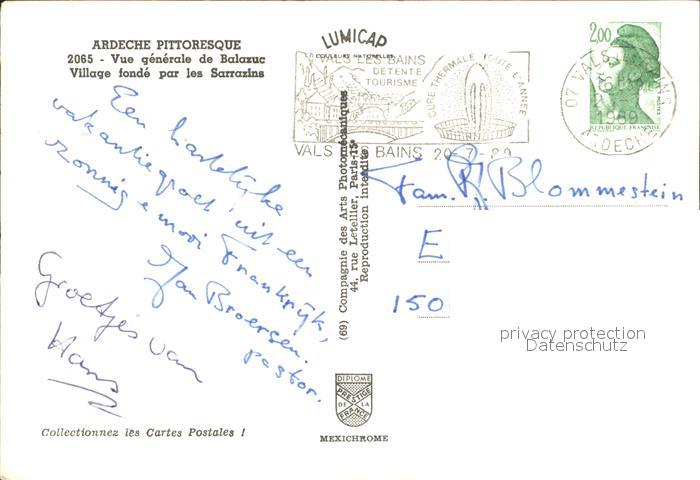 ARDECHE PITTORESQUE
2065 - Vue générale de Balazuc
Village fondé par les Sarrazins
Een hartelijke
vakantiegroet uit een
zonnig & mooi Frankrijk,
Jan Broersen.
pastor.
Groetjes van
Hans
Collectionnez les Cartes Postales !
LUMICAP
COULEURS NATURELLES
VALS LES BAINS
DETENTE
TOURISME
CURE THERMALE TOUTE L'ANNEE
VALS BAINS 20-7-89
2,00
REPUBLIQUE FRANÇAISE
07 VALS BAINS
1989
ARDECHE
(69) Compagnie des Arts Photomécaniques
44, rue Letellier, Paris-15e
Reproduction interdite
Fam. Blommestein
E
150
privacy protection
Datenschutz
DIPLOME
PRESTIGE
DE LA
FRANCE
MEXICHROME